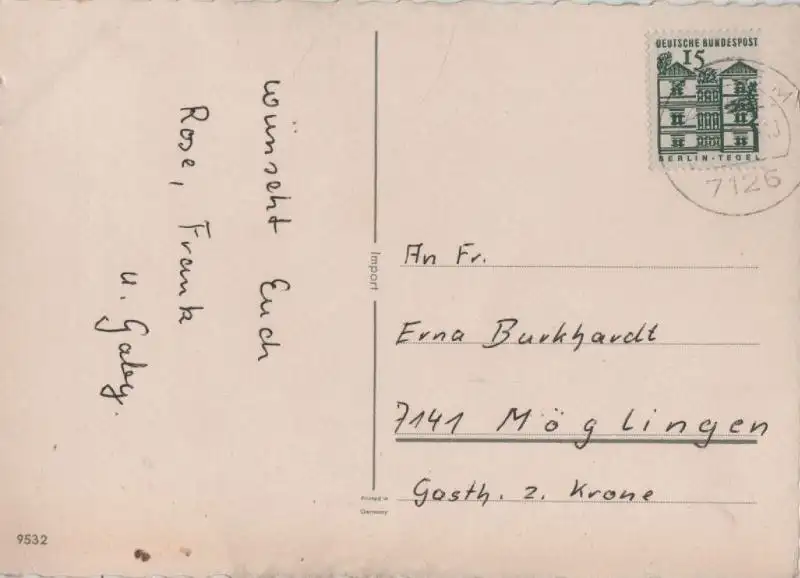 wünscht Euch
Rose, Frank
u. Gaby.
DEUTSCHE BUNDESPOST
15
BERLIN-TEGEL
7126
An Fr.
Erna Burkhardt
7141 Möglingen
Gasth. z. Krone
Import
Printed in
Germany
9532